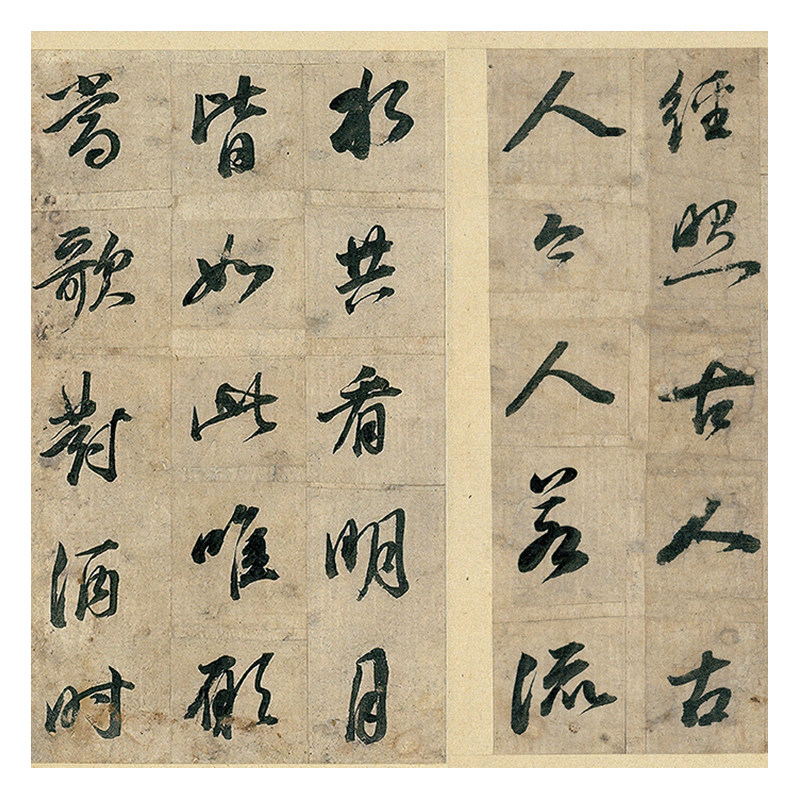 經照古人古
人今人若流
水共看明月
皆如此唯願
當歌對酒時